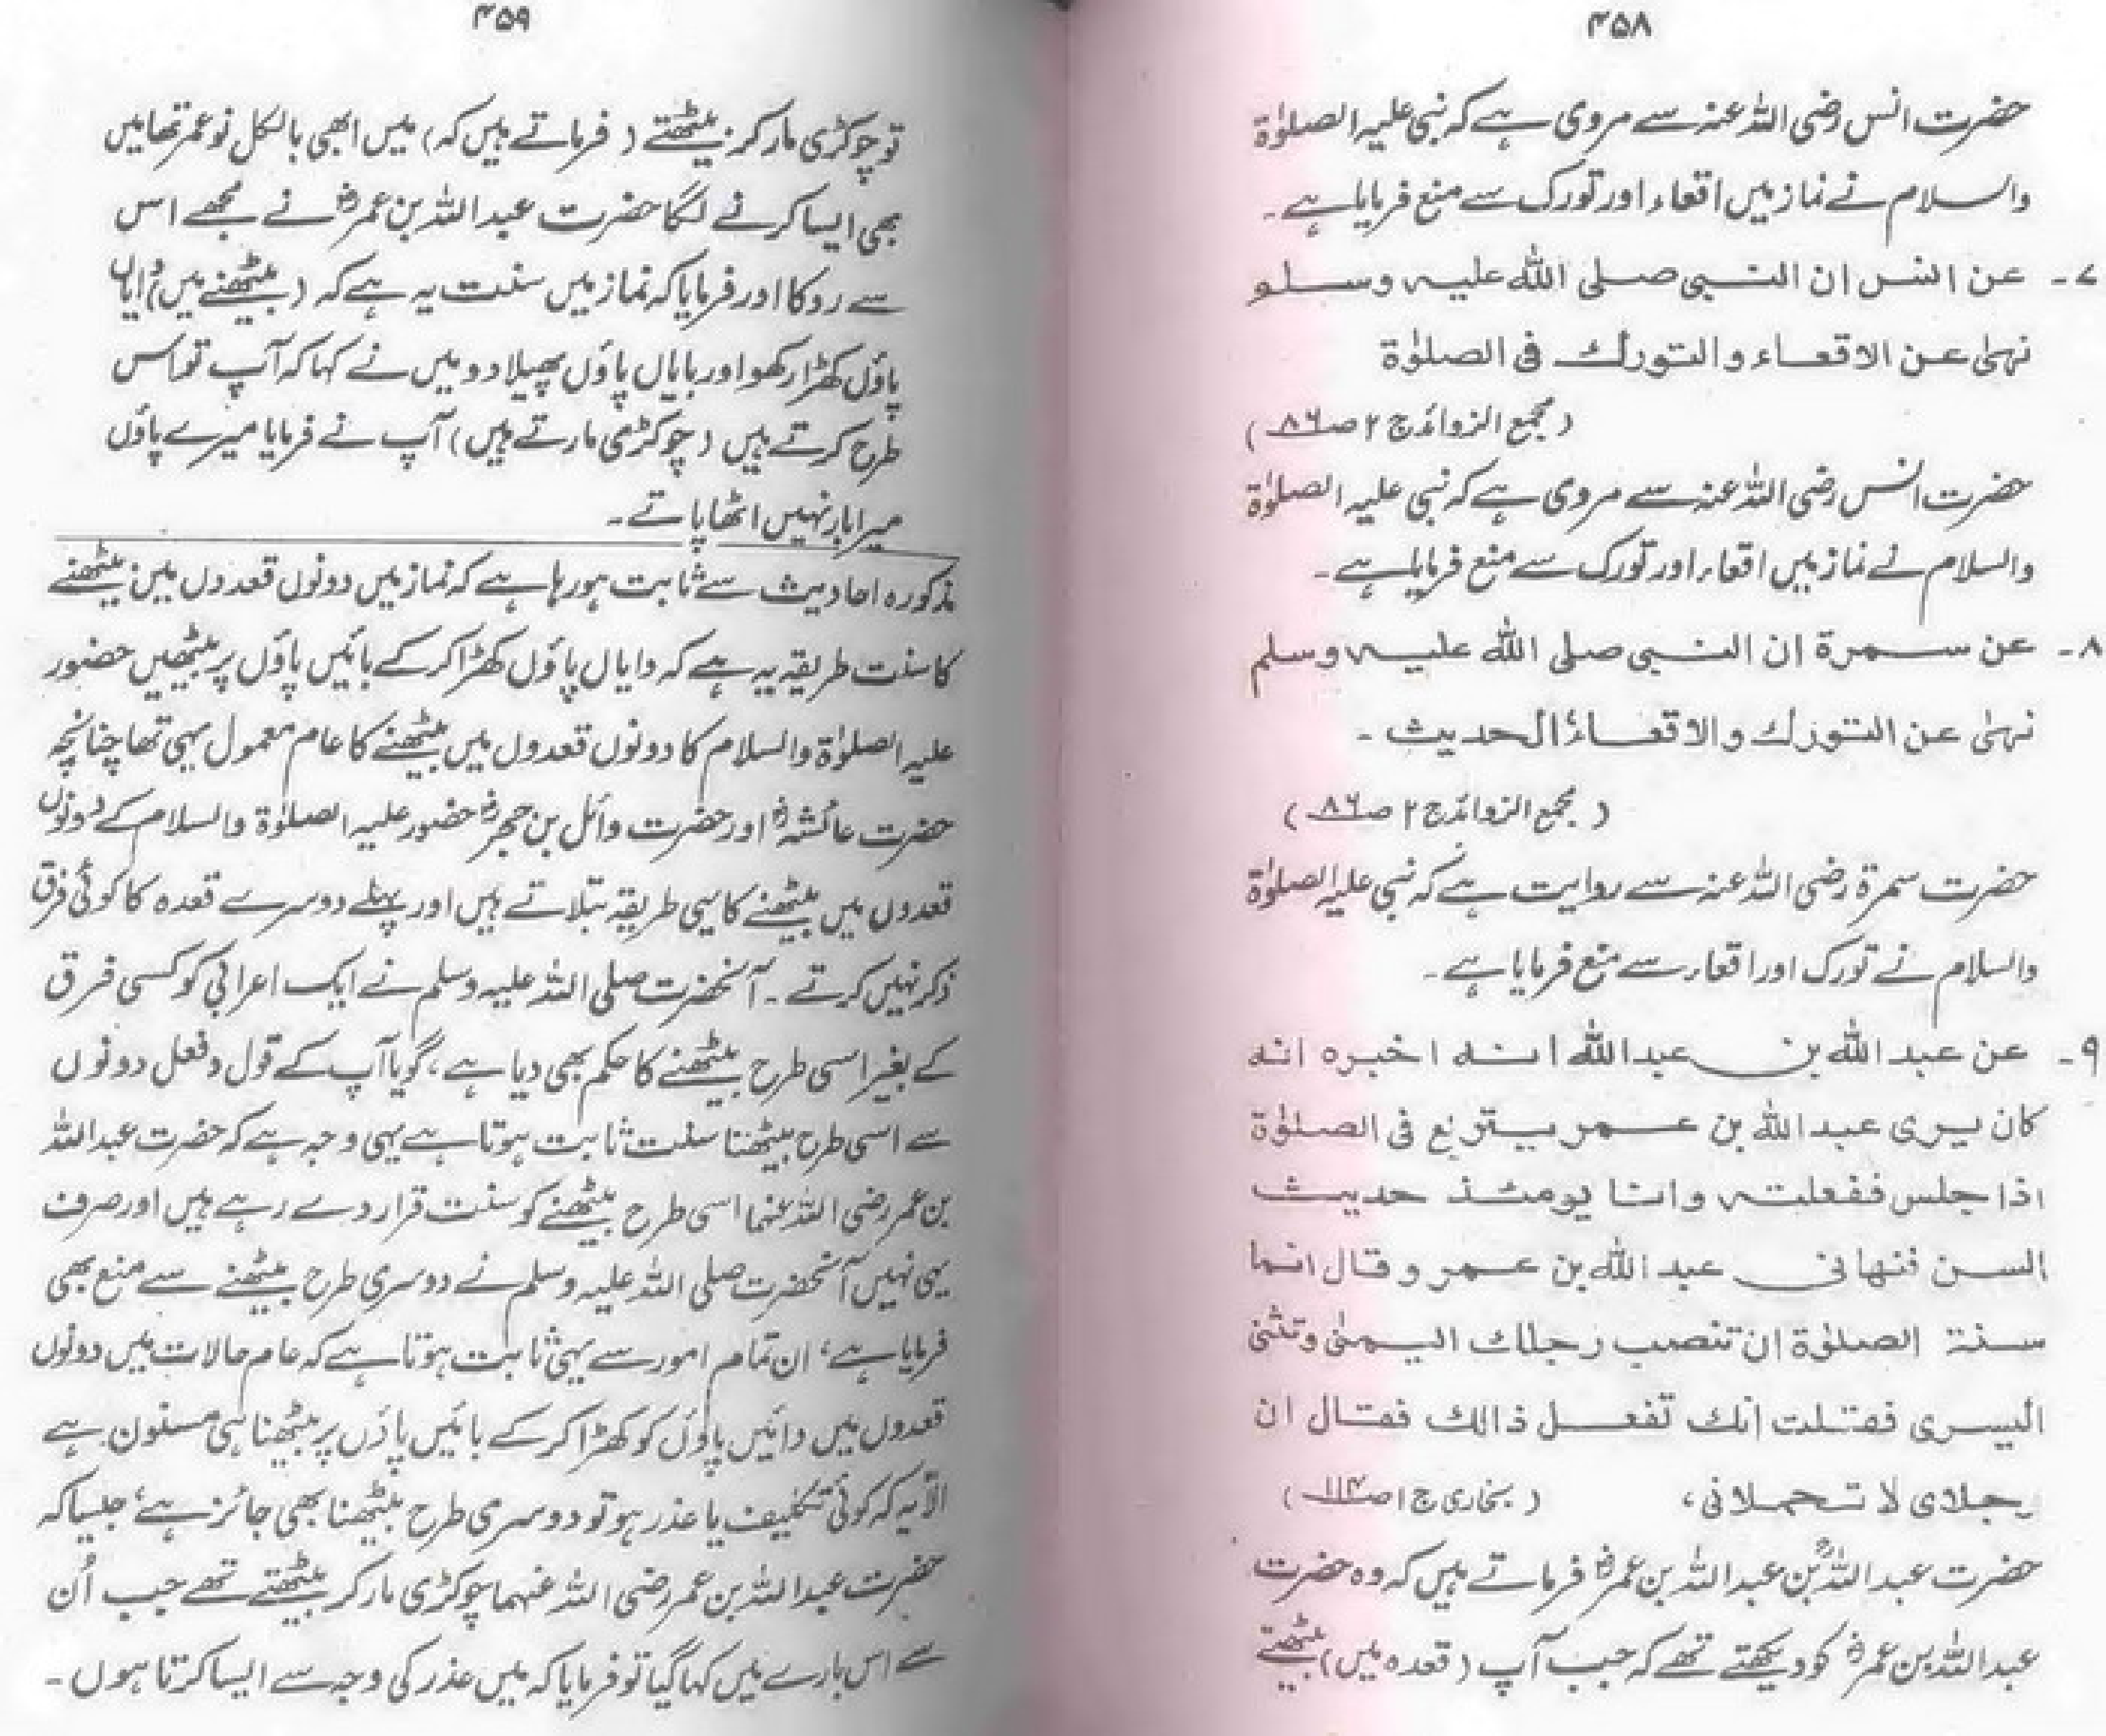 ۴۵۸
حضرت انس رضی اللہ عنہ سے مروی ہے کہ نبی علیہ الصلوٰۃ
والسلام نے نماز میں اقعاء اور تورک سے منع فرمایا ہے۔
۷۔ عن انس ان النبی صلی اللہ علیہ وسلم
نہیٰ عن الاقعاء والتورك فی الصلوٰۃ
(مجمع الزوائد ج ۲ ص ۸۶)
حضرت انس رضی اللہ عنہ سے مروی ہے کہ نبی علیہ الصلوٰۃ
والسلام نے نماز میں اقعاء اور تورک سے منع فرمایا ہے۔
۸۔ عن سمرة ان النبی صلی اللہ علیہ وسلم
نہیٰ عن التورك والاقعاء الحدیث ۔
(مجمع الزوائد ج ۲ ص ۸۶)
حضرت سمرۃ رضی اللہ عنہ سے روایت ہے کہ نبی علیہ الصلوٰۃ
والسلام نے تورک اور اقعاء سے منع فرمایا ہے۔
۹۔ عن عبد اللہ بن عبد اللہ انہ اخبرہ انہ
کان یری عبد اللہ بن عمر یتربع فی الصلوٰۃ
اذا جلس ففعلتہ وانا یومئذ حدیث
السن فنہانی عبد اللہ بن عمر وقال انما
سنۃ الصلوٰۃ ان تنصب رجلك الیمنیٰ وتثنی
الیسری فقلت انك تفعل ذالك فقال ان
رجلای لا تحملانی، (بخاری ج ۱ ص ۱۱۴)
حضرت عبد اللہؒ بن عبد اللہ بن عمرؓ فرماتے ہیں کہ وہ حضرت
عبد اللہ بن عمرؓ کو دیکھتے تھے کہ جب آپ (قعدہ میں) بیٹھتے
۴۵۹
تو چوکڑی مار کر بیٹھتے (فرماتے ہیں کہ) میں ابھی بالکل نو عمر تھا میں
بھی ایسا کرنے لگا حضرت عبد اللہ بن عمرؓ نے مجھے اس
سے روکا اور فرمایا کہ نماز میں سنت یہ ہے کہ (بیٹھنے میں) دایاں
پاؤں کھڑا رکھو اور بایاں پاؤں پھیلا دو میں نے کہا کہ آپ تو اس
طرح کرتے ہیں (چوکڑی مارتے ہیں) آپ نے فرمایا میرے پاؤں
میرا بار نہیں اٹھا پاتے۔
مذکورہ احادیث سے ثابت ہو رہا ہے کہ نماز میں دونوں قعدوں میں بیٹھنے
کا سنت طریقہ یہ ہے کہ دایاں پاؤں کھڑا کر کے بائیں پاؤں پر بیٹھیں حضور
علیہ الصلوٰۃ والسلام کا دونوں قعدوں میں بیٹھنے کا عام معمول یہی تھا چنانچہ
حضرت عائشہؓ اور حضرت وائل بن حجرؓ حضور علیہ الصلوٰۃ والسلام کے دونوں
قعدوں میں بیٹھنے کا یہی طریقہ بتلاتے ہیں اور پہلے دوسرے قعدہ کا کوئی فرق
ذکر نہیں کرتے۔ آنحضرت صلی اللہ علیہ وسلم نے ایک اعرابی کو کسی فرق
کے بغیر اسی طرح بیٹھنے کا حکم بھی دیا ہے، گویا آپ کے قول و فعل دونوں
سے اسی طرح بیٹھنا سنت ثابت ہوتا ہے یہی وجہ ہے کہ حضرت عبد اللہ
بن عمر رضی اللہ عنہما اسی طرح بیٹھنے کو سنت قرار دے رہے ہیں اور صرف
یہی نہیں آنحضرت صلی اللہ علیہ وسلم نے دوسری طرح بیٹھنے سے منع بھی
فرمایا ہے، ان تمام امور سے یہی ثابت ہوتا ہے کہ عام حالات میں دونوں
قعدوں میں دائیں پاؤں کو کھڑا کر کے بائیں پاؤں پر بیٹھنا ہی مسنون ہے
الّا یہ کہ کوئی تکلیف یا عذر ہو تو دوسری طرح بیٹھنا بھی جائز ہے، جیسا کہ
حضرت عبد اللہ بن عمر رضی اللہ عنہما چوکڑی مار کر بیٹھتے تھے جب اُن
سے اس بارے میں کہا گیا تو فرمایا کہ میں عذر کی وجہ سے ایسا کرتا ہوں۔